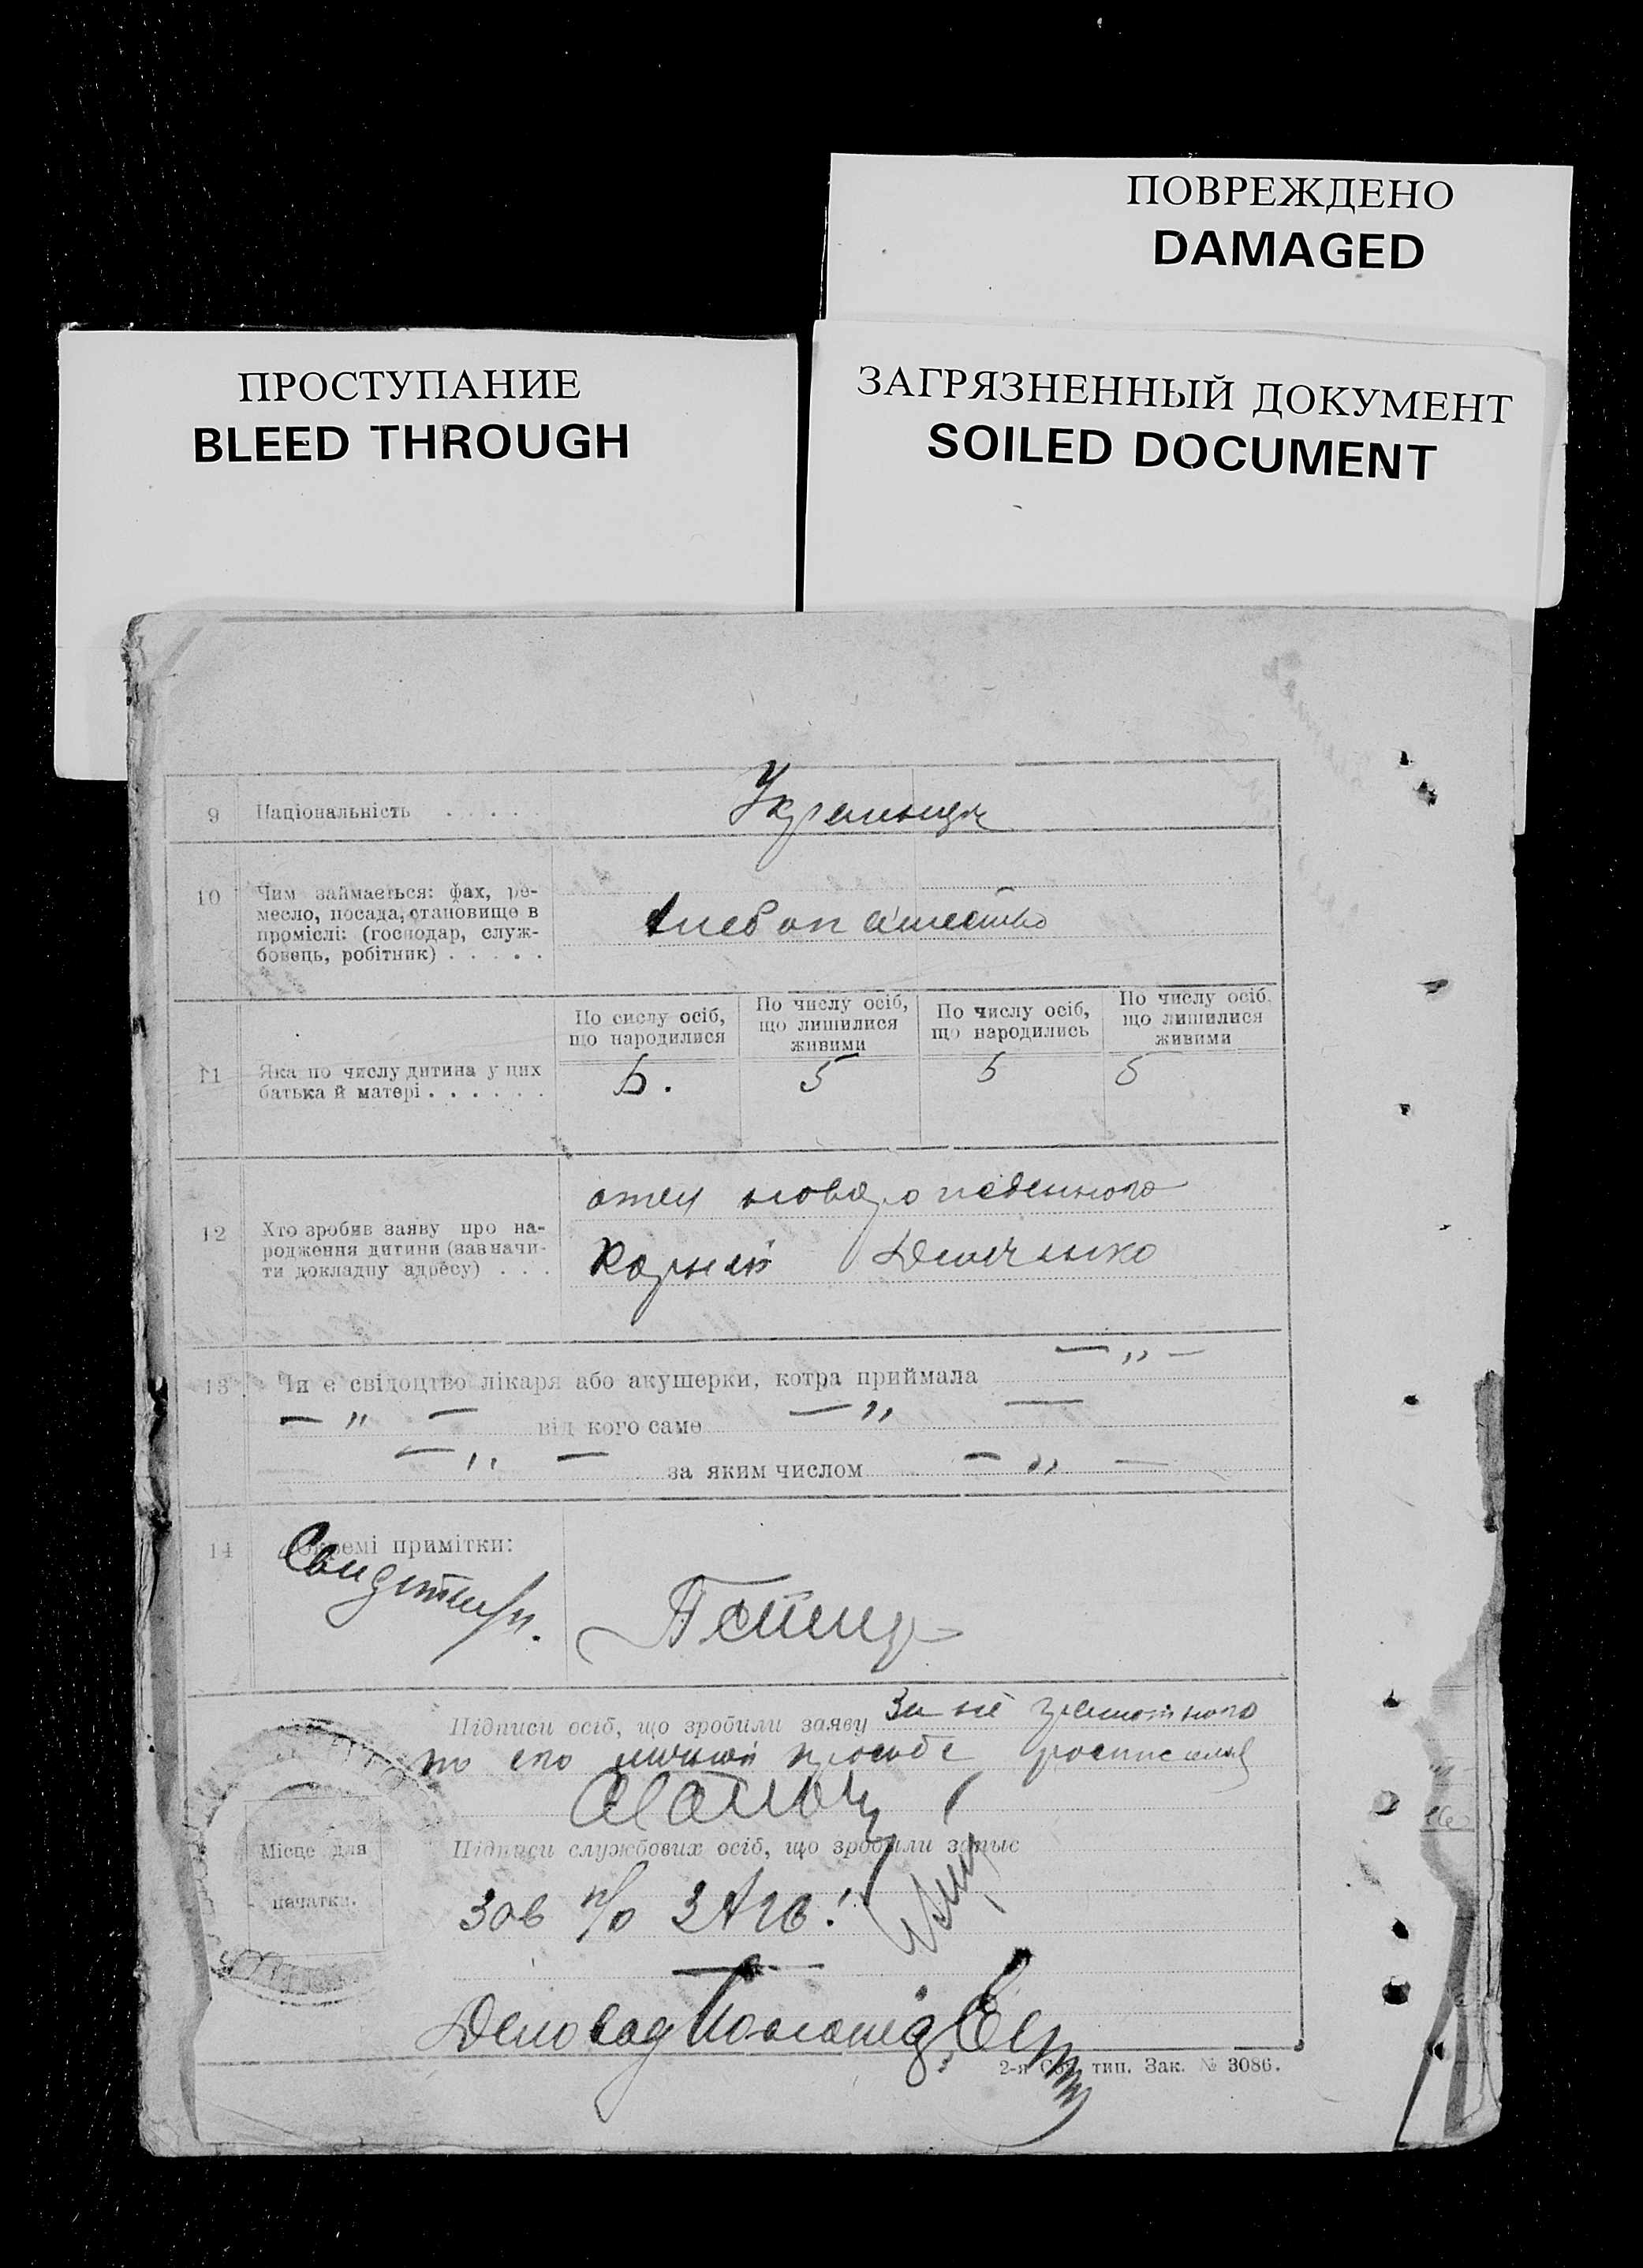 ПОВРЕЖДЕНО
DAMAGED
ПРОСТУПАНИЕ
BLEED THROUGH
ЗАГРЯЗНЕННЫЙ ДОКУМЕНТ
SOILED DOCUMENT
9 Національність . . . . .
10 Чим займається: фах, ре-
месло, посада, становище в
промислі: (господар, служ-
бовець, робітник) . . . . .
По сислу осіб,
що народилися
По числу осіб,
що лишилися
живими
По числу осіб,
що народились
По числу осіб,
що лишилися
живими
11 Яка по числу дитина у цих
батька й матері . . . . . .
5. 5 5 5
12 Хто зробив заяву про на-
родження дитини (завначи-
ти докладну адресу) . . .
отец новорожденного
Корней
13 Чи є свідоцтво лікаря або акушерки, котра приймала — „ —
— „ — від кого саме — „ —
— „ — за яким числом — „ —
14 Окремі примітки:
Підписи осіб, що зробили заяву За не грамотного
по его личной просьбе росписался
Підписи службових осіб, що зробили запис
Місце для
печатки.
Зав п/о ЗАГС
2-я тип. Зак. № 3086.